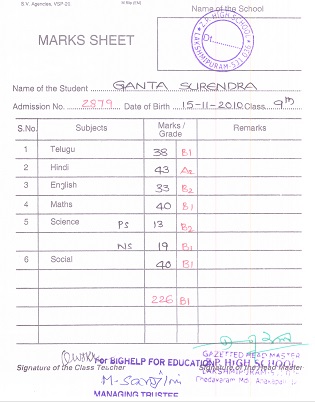 S.V. Agencies, VSP-20
Name of the School
Z.P. HIGH SCHOOL
LAKSHMIPURAM-531 026
Dt.
MARKS SHEET
Name of the Student GANTA SURENDRA
Admission No. 2879 Date of Birth 15-11-2010 Class 9th
S.No. Subjects Marks / Grade Remarks
1 Telugu 38 B1
2 Hindi 43 A2
3 English 33 B2
4 Maths 40 B1
5 Science PS 13 B2
NS 19 B1
6 Social 40 B1
226 B1
GAZETTED HEAD MASTER
For BIGHELP FOR EDUCATION
Z.P. HIGH SCHOOL
Signature of the Class Teacher
Signature of the Head Master
MANAGING TRUSTEE